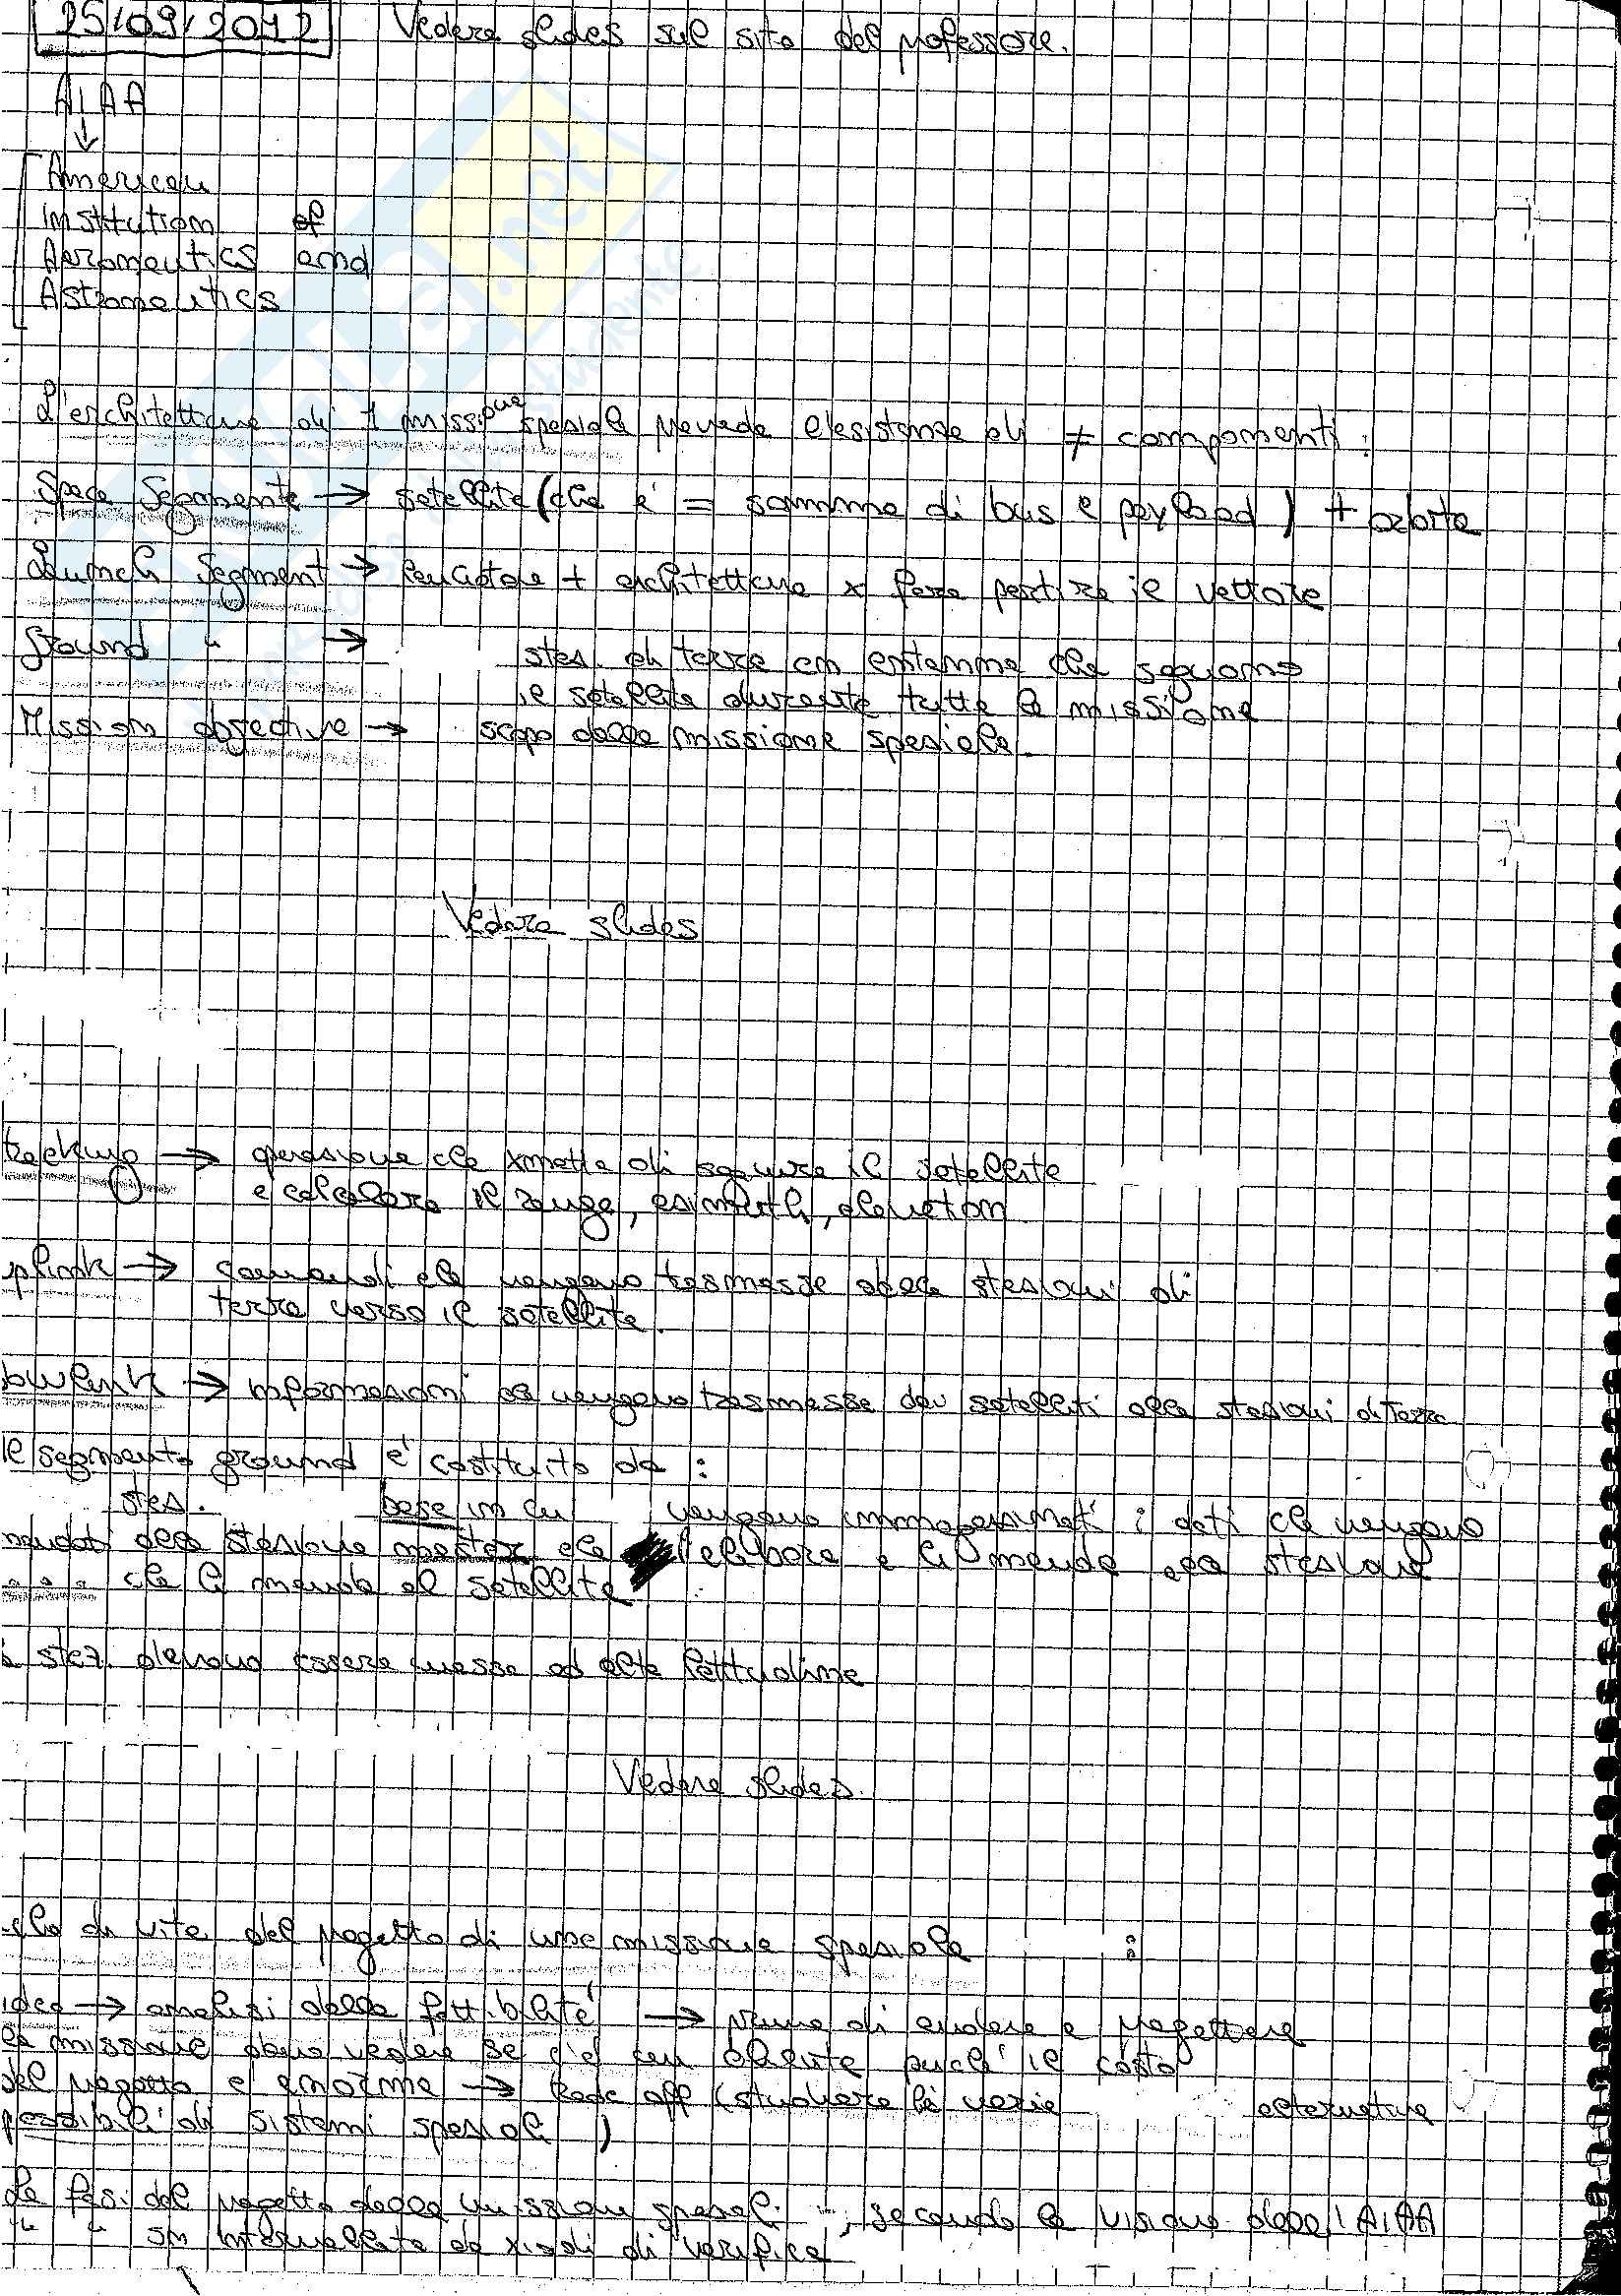 25/09/2012 Vedere slides sul sito del professore.
AIAA
↓
American
Institution of
Aeronautics and
Astronautics
L'architettura di 1 missione spaziale prevede l'esistenza di ≠ componenti:
Space Segmente → satellite (che è = somma di bus e payload) + orbita
Launch Segment → lanciatore + architettura x fare partire il vettore
Ground " → staz. di terra cn antenna che seguono
il satellite durante tutta la missione
Mission objective → scopo della missione spaziale.
Vedere slides
tracking → operazione che xmette di seguire il satellite
e calcolare il range, azimuth, elevation
uplink → comandi che vengono trasmesse dalle stazioni di
terra verso il satellite.
downlink → informazioni che vengono trasmesse dai satelliti alle stazioni di Terra
Il segmento ground è costituito da:
staz. base in cui vengono immagazzinati i dati che vengono
mandati alla stazione master che l'elabora e li manda alla stazione
" " " che li manda al satellite
Le staz. devono essere messe ad alta latitudine
Vedere slides.
Ciclo di vita del progetto di una missione spaziale :
idea → analisi della fattibilità → prima di andare a progettare
la missione devo vedere se c'è un cliente perché il costo
del progetto è enorme → trade off (studiare le varie alternative
possibili di sistemi spaziali)
Le fasi del progetto della missione spaziali, secondo la visione dell'AIAA
" " sn intervallate da xiodi di verifica